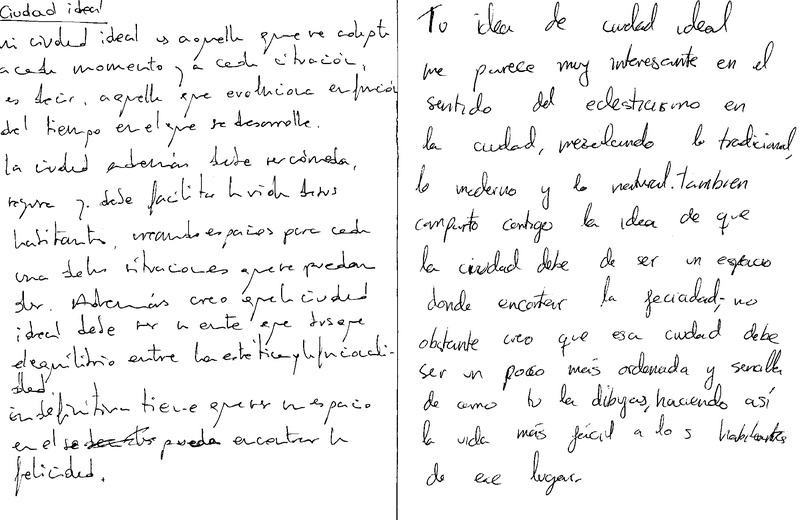 Ciudad ideal
mi ciudad ideal es aquella que se adapta
a cada momento y a cada situación,
es decir, aquella que evoluciona en función
del tiempo en el que se desarrolle.
La ciudad además debe ser cómoda,
segura y debe facilitar la vida de sus
habitantes, creando espacios para cada
una de las situaciones que se puedan
dar. Además creo que la ciudad
ideal debe ser un ente que busque
el equilibrio entre la estética y la funcionali-
dad.
En definitiva tiene que ser un espacio
en el se pueda encontrar la
felicidad.
Tu idea de ciudad ideal
me parece muy interesante en el
sentido del eclesticismo en
la ciudad, mezclando lo tradicional,
lo moderno y lo natural. También
comparto contigo la idea de que
la ciudad debe de ser un espacio
donde encontrar la feciadad; no
obstante creo que esa ciudad debe
ser un poco más ordenada y sencilla
de como tu la dibujas, haciendo así
la vida más fácil a los habitantes
de ese lugar.